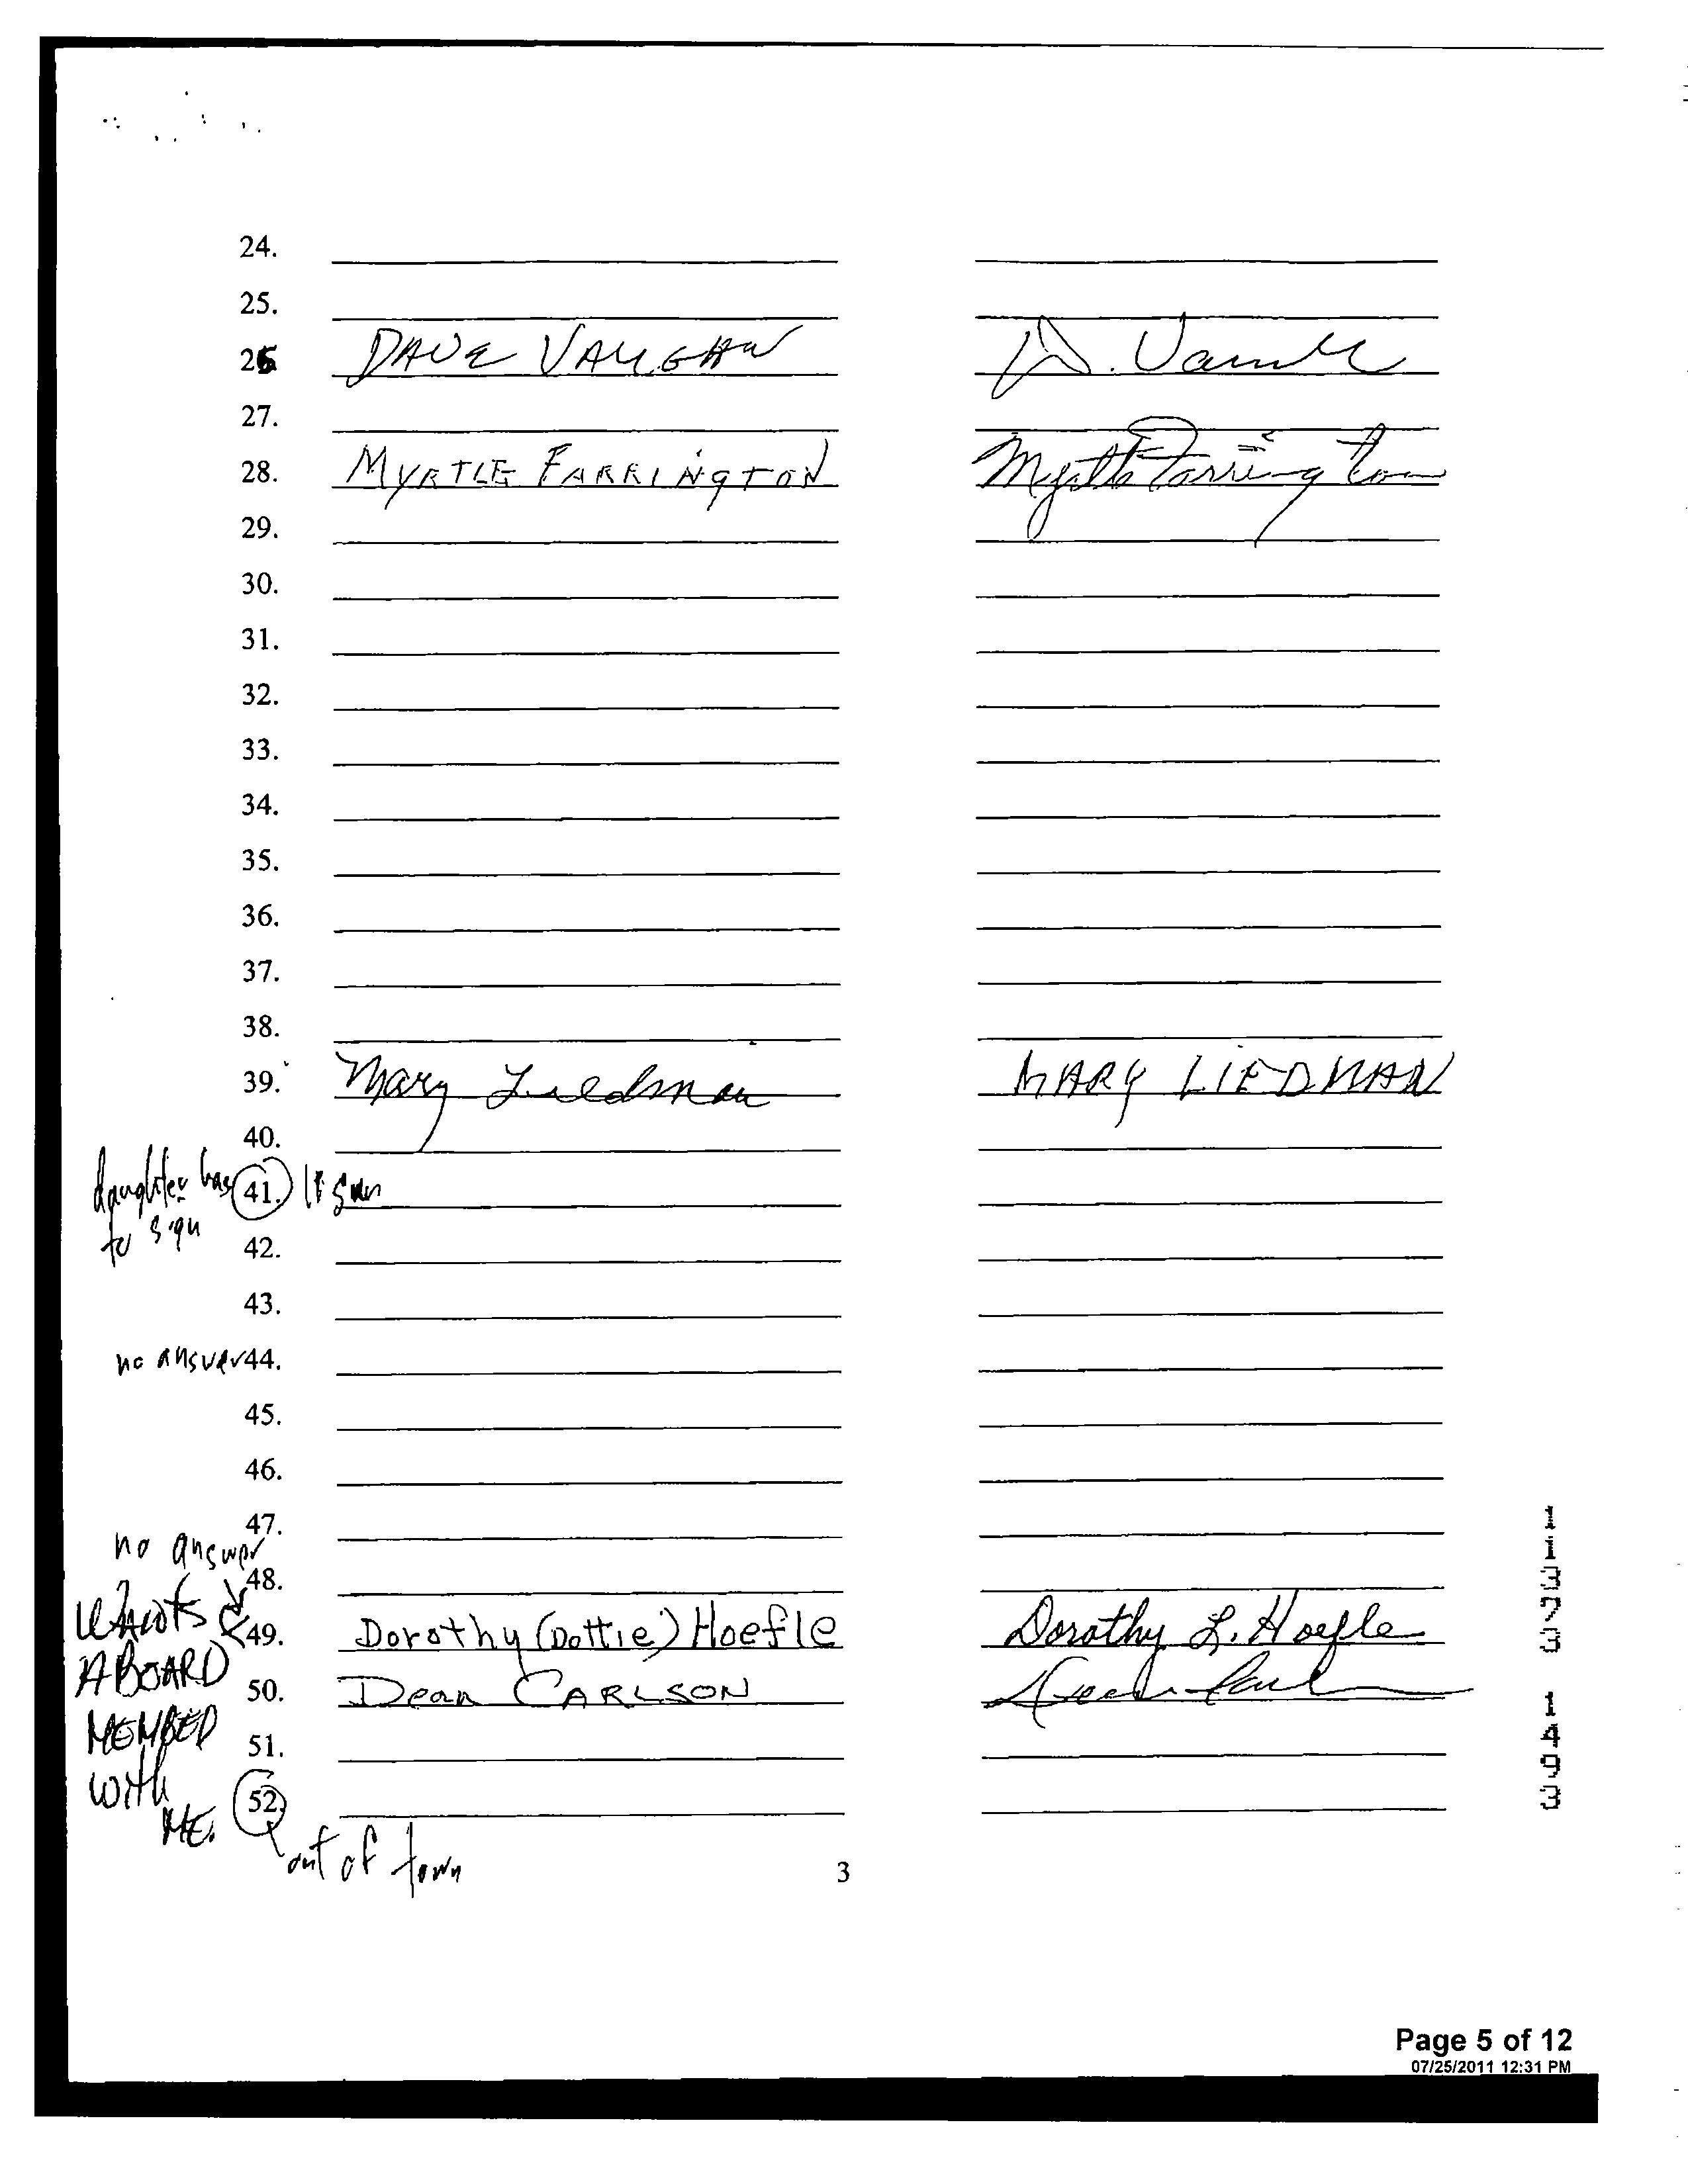 24.
25.
26 DAVE VAUGHAN D. Vaughn
27.
28. MYRTLE FARRINGTON Myrtle Farrington
29.
30.
31.
32.
33.
34.
35.
36.
37.
38.
39. Mary Liedman MARY LIEDMAN
40.
daughter has 41.
to sign
42.
43.
no answer 44.
45.
46.
47.
no answer
48.
WANTS 49. Dorothy (Dottie) Hoefle Dorothy L. Hoefle
A BOARD 50. Dean CARLSON
MEMBER 51.
WITH
ME. 52.
out of town
3
1 1 3 7 3 1 4 9 3
Page 5 of 12
07/25/2011 12:31 PM